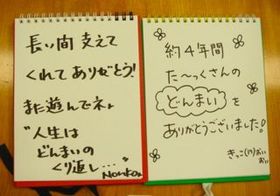 長い間支えて
くれてありがとう!
また遊んでネ♪
"人生は
どんまいの
くり返し…"
Noriko
約4年間
た〜っくさんの
どんまいを
ありがとうございました!